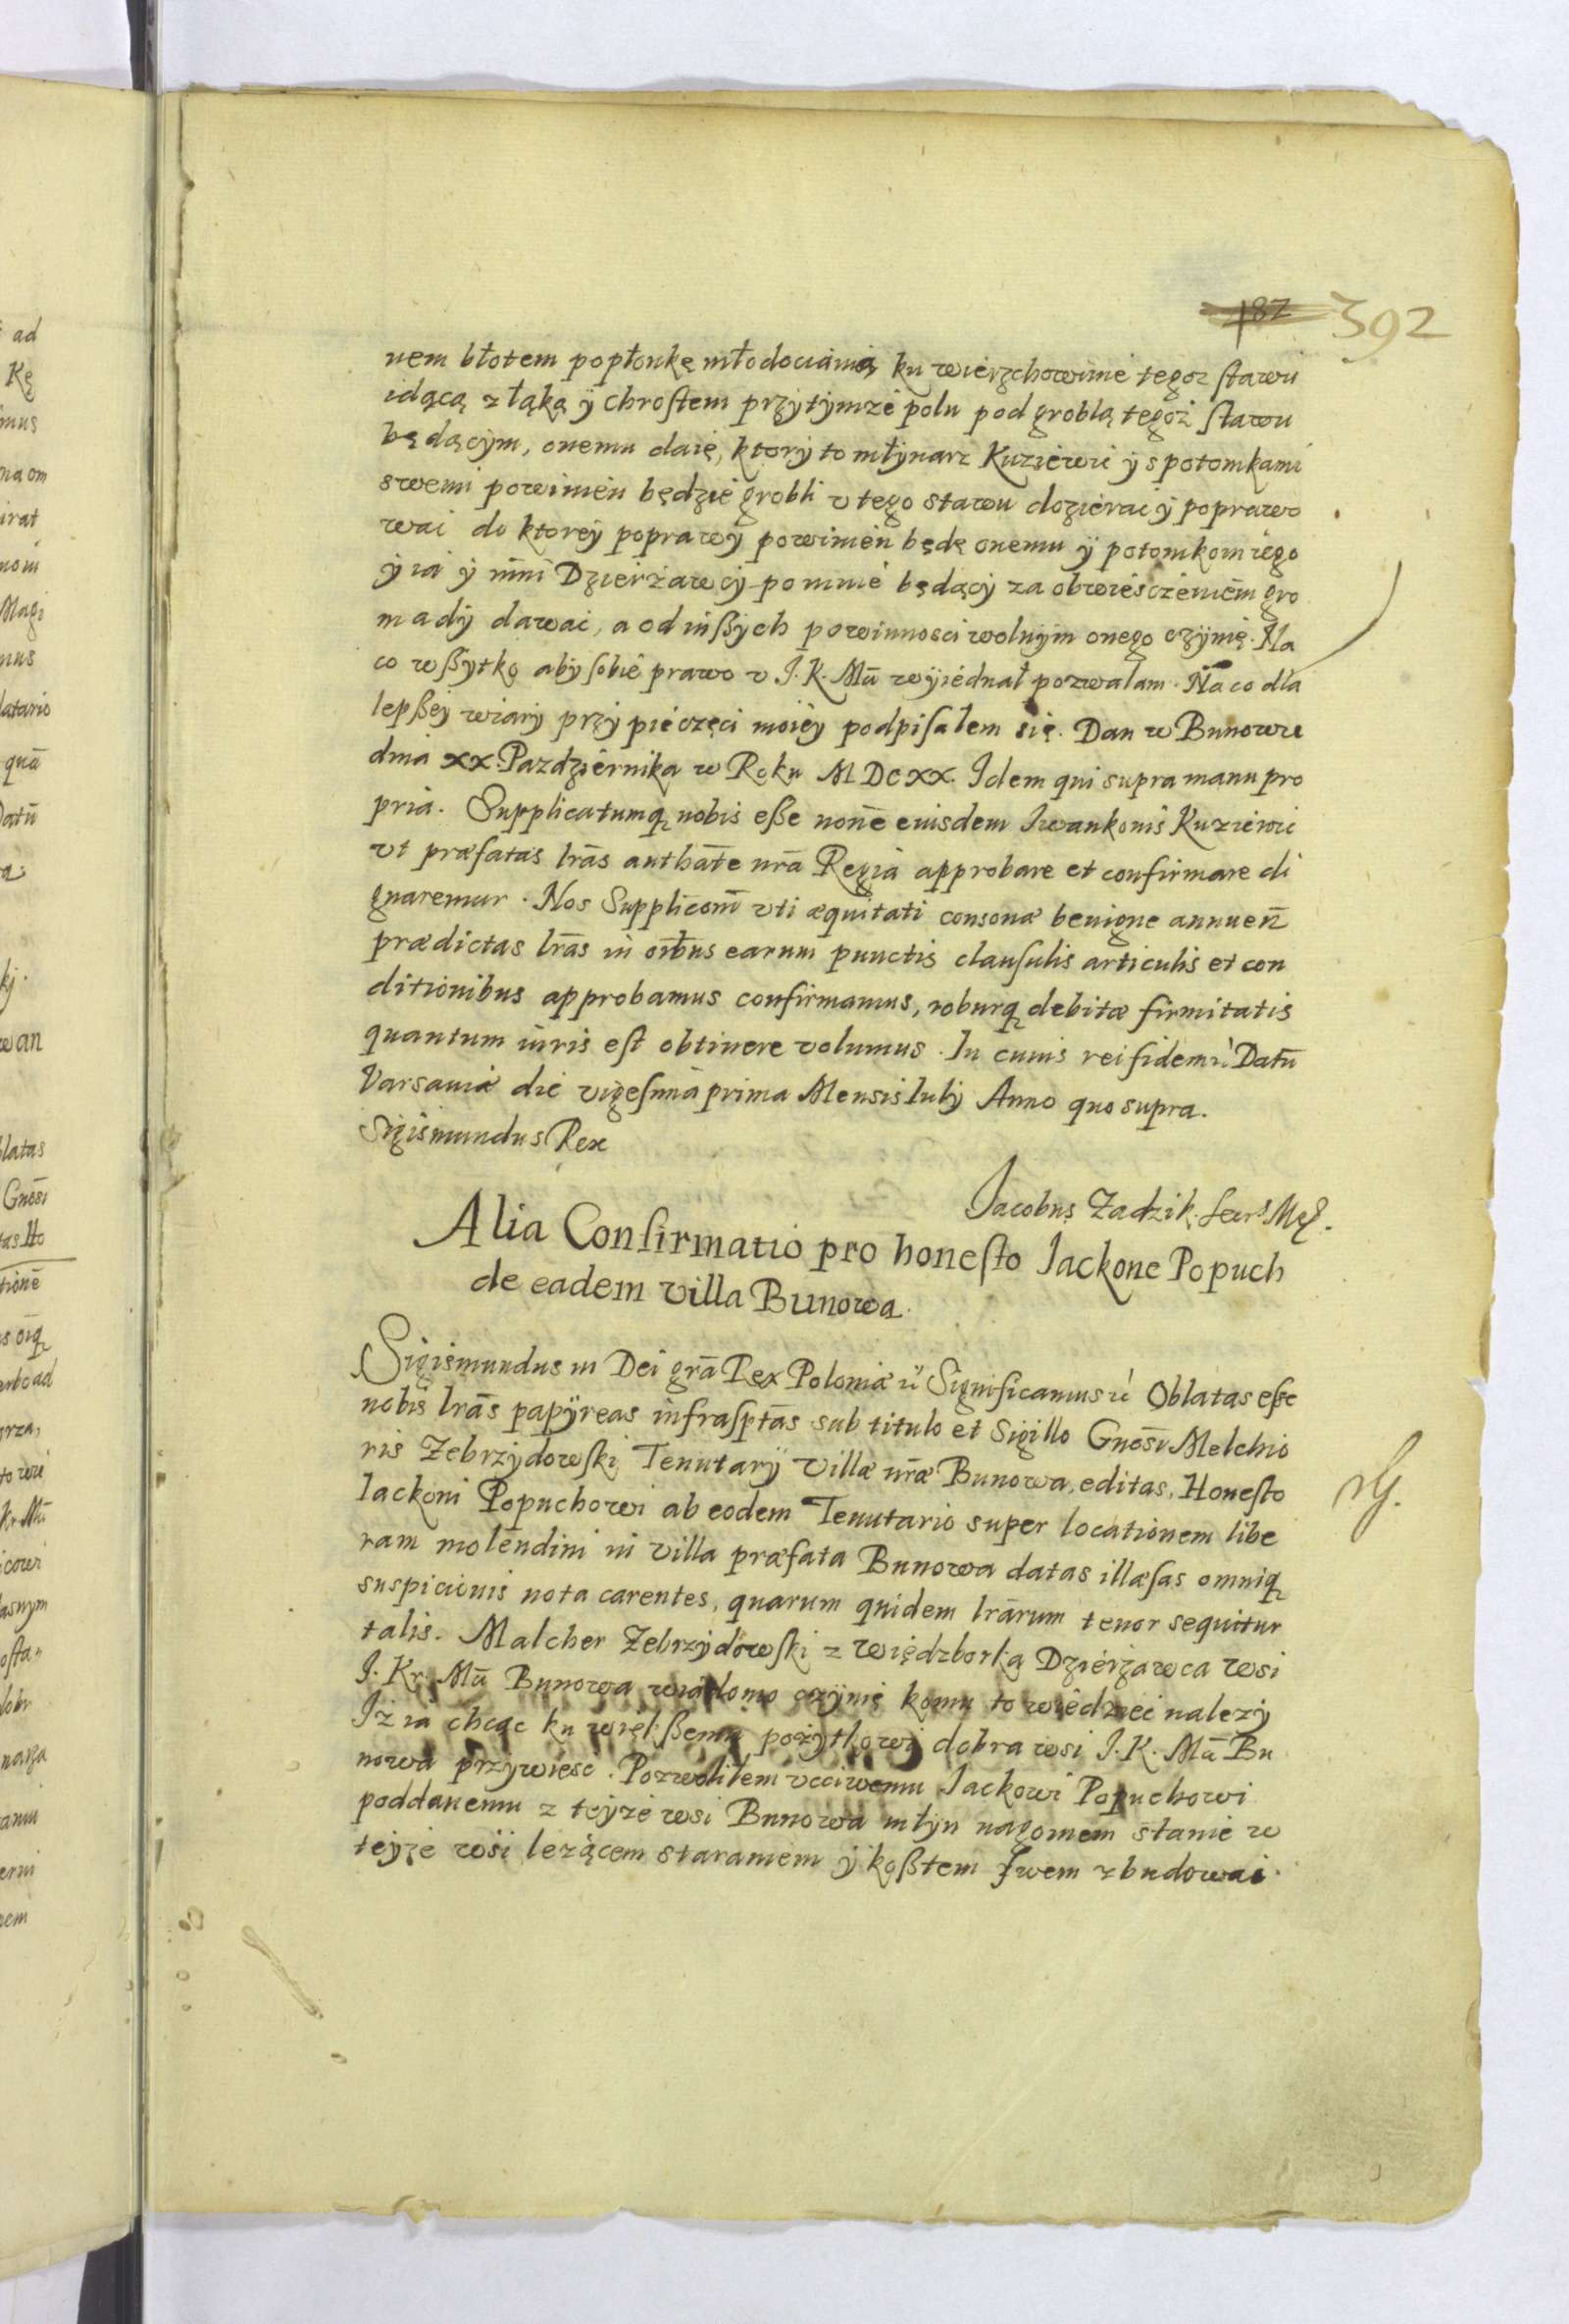 182 392
nem błotem popłonkę młodocianią ku wierzchowinie tegoż stawu
idącą z łąką ÿ chrostem przytymże polu pod groblą tegoż stawu
będącym, onemu daię, ktory to młynarz Kuziewic ÿ s potomkami
swemi powinien będzie grobli v tego stawu dozierać ÿ poprawo
wać do ktoreÿ poprawÿ powinien będę onemu ÿ potomkom iego
ÿ ia ÿ inni Dzierżawcÿ po mnie będącÿ za obwiesczeniem gro
madÿ dawać, a od inßÿch powinnosci wolnÿm onego czÿnię. Na
co wßÿtko abÿ sobie prawo v J. K. Mći wÿiednał pozwalam. Na co dla
lepßeÿ wiarÿ przÿ pieczęci moieÿ podpisałem się. Dan w Bunowie
dnia xx. Pazdziernika w Roku MDCXX. Idem qui supra manu pro
pria. Supplicatumq nobis eße nonē eiusdem Iwankonis Kuziewic
vt præfatas lrās authāte nrā Regia approbare et confirmare di
gnaremur. Nos Supplicōni vti æquitati consonæ benigne annueñ
prædictas lrās in oībus earum punctis clausulis articulis et con
ditionibus approbamus confirmamus, roburq debitæ firmitatis
quantum iuris est obtinere volumus. In cuius rei fidem ẽ Datū
Varsaviæ die vigesima prima Mensis Iulÿ Anno quo supra.
Sigismundus Rex
Jacobus Zadzik. Secrs
Alia Confirmatio pro honesto Jackone Popuch
de eadem villa Bunowa.
Sigismundus III Dei grā Rex Poloniæ ẽ Significamus ẽ Oblatas eße
nobis lrās papÿreas infrasptās sub titulo et Sigillo Gnosī Melchio
ris Zebrzÿdowski Tenutarÿ Villæ nræ Bunowa, editas, Honesto
Iackoni Popuchowi ab eodem Tenutario super locationem libe
ram molendini in villa præfata Bunowa datas illæsas omniq
suspicionis nota carentes, quarum quidem lrārum tenor sequitur
talis. Malcher Zebrzÿdowski z więdzborka Dzierżawca wsi
J. Kr. Mći Bunowa wiadomo czÿnię komu to wiedzieć nalezÿ
Iż ia chcąc ku więkßemu pożÿtkowi dobra wsi J. K. Mći Bu
nowa przÿwiesć. Pozwoliłem vcciwemu Iackowi Popuchowi
poddanemu z teÿże wsi Bunowa młÿn na gornem stawie w
teÿże wsi leżącem staraniem ÿ koßtem swem zbudować.